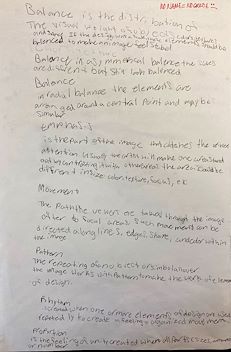 NO NAME = NO GRADE !!
Balance is the distribution of
The visual weight of objects, colors texture
and space. If the design was a scale these elements should be
balanced to make an image feel stabel
Balance in asymmetrical balance the sides
are different but still look balanced
Balance
in radial balance the elements are
arranged around a central point and may be
similar
Emphasis
is the part of the image that catches the viewer
attention usually the artist will make one area stand
out by contrasting it with other areas the area could be
different in size color texture,
Movement
The path the viewer are taken through the image
often to focal areas. Such movement can be
directed along lines, edges, Shape, and color within
the image
Pattern
The repeating of an object or simbol all over
the image works with Pattern to make the work of
of design.
Rhytem
is created when one or more elements of design are used
repeatedly to create a feeling of organized movement
Proportion
is the feeling of unity created when all parts sizes, amounts
or number